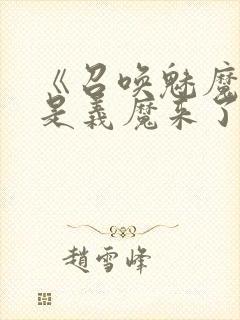 《召唤魅魔
是義魔来了
趙雪峰